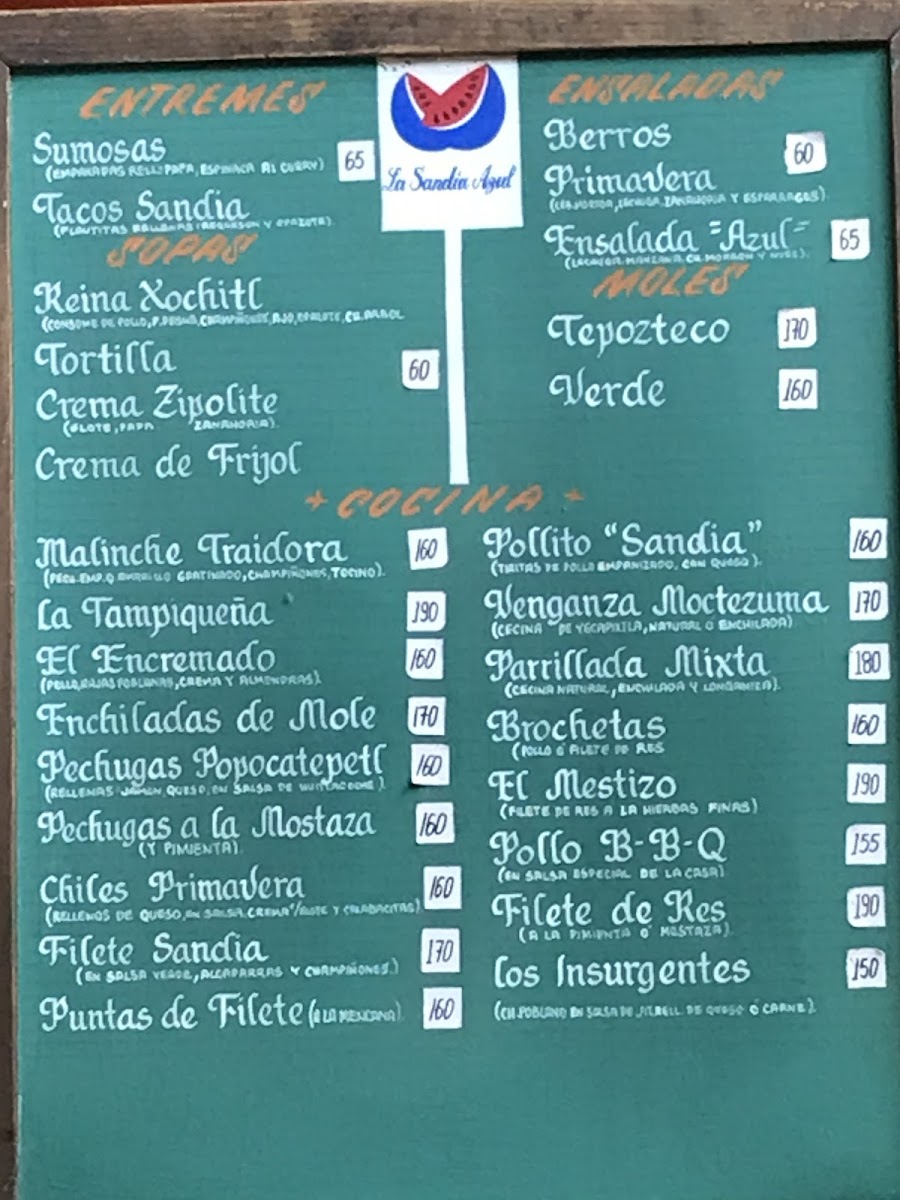 ENTREMES
Sumosas 65
(EMPANADAS RELL: PAPA, ESPINACA AL CURRY)
Tacos Sandia
(FLAUTITAS RELLENAS (REQUESON Y EPAZOTE).
SOPAS
Reina Xochitl
(CONSOME DE POLLO, P. CHAMPIÑONES, AJO, EPAZOTE, CH. ARBOL
Tortilla 60
Crema Zipolite
(ELOTE, PAPA ZANAHORIA).
Crema de Frijol
La Sandia Azul
ENSALADAS
Berros 60
Primavera
(LECHUGA, ZANAHORIA Y ESPARRAGOS)
Ensalada "Azul" 65
(LECHUGA, MANZANA, CH. MORRON Y NUEZ).
MOLES
Tepozteco 170
Verde 160
+ COCINA +
Malinche Traidora 160
(PECH. EMP. Q AMARILLO GRATINADO, CHAMPIÑONES, TOCINO).
La Tampiqueña 190
El Encremado 160
(POLLO, RAJAS POBLANAS, CREMA Y ALMENDRAS).
Enchiladas de Mole 170
Pechugas Popocatepetl 160
(RELLENAS JAMON, QUESO, EN SALSA DE HUITLACOCHE).
Pechugas a la Mostaza 160
(Y PIMIENTA).
Chiles Primavera 160
(RELLENOS DE QUESO, EN SALSA CREMA C/ELOTE Y CALABACITAS)
Filete Sandia 170
(EN SALSA VERDE, ALCAPARRAS Y CHAMPIÑONES.)
Puntas de Filete (A LA MEXICANA) 160
Pollito "Sandia" 160
(TIRITAS DE POLLO EMPANIZADO, CON QUESO).
Venganza Moctezuma 170
(CECINA DE YECAPIXTLA, NATURAL O ENCHILADA)
Parrillada Mixta 180
(CECINA NATURAL, ENCHILADA Y LONGANIZA).
Brochetas 160
(POLLO Ó FILETE DE RES
El Mestizo 190
(FILETE DE RES A LA HIERBAS FINAS)
Pollo B-B-Q 155
(EN SALSA ESPECIAL DE LA CASA)
Filete de Res 190
(A LA PIMIENTA O' MOSTAZA)
Los Insurgentes 150
(CH. POBLANO EN SALSA DE JIT, RELL. DE QUESO Ó CARNE).